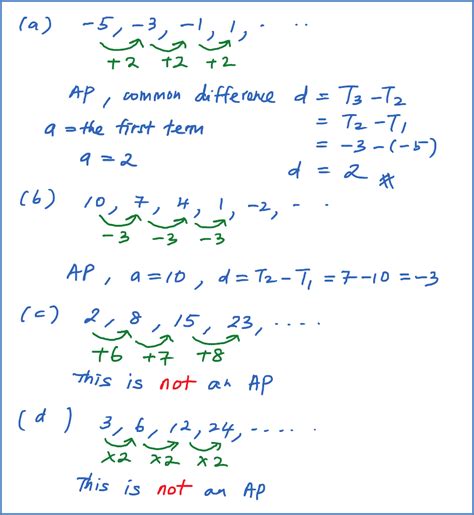 (a) -5, -3, -1, 1, . . .
+2 +2 +2
AP, common difference d = T₃ - T₂
a = the first term = T₂ - T₁
= -3 - (-5)
a = 2
d = 2 #
(b) 10, 7, 4, 1, -2, . . .
-3 -3 -3
AP, a = 10, d = T₂ - T₁ = 7 - 10 = -3
(c) 2, 8, 15, 23, . . . .
+6 +7 +8
This is not an AP
(d) 3, 6, 12, 24, . . . . .
×2 ×2 ×2
This is not an AP